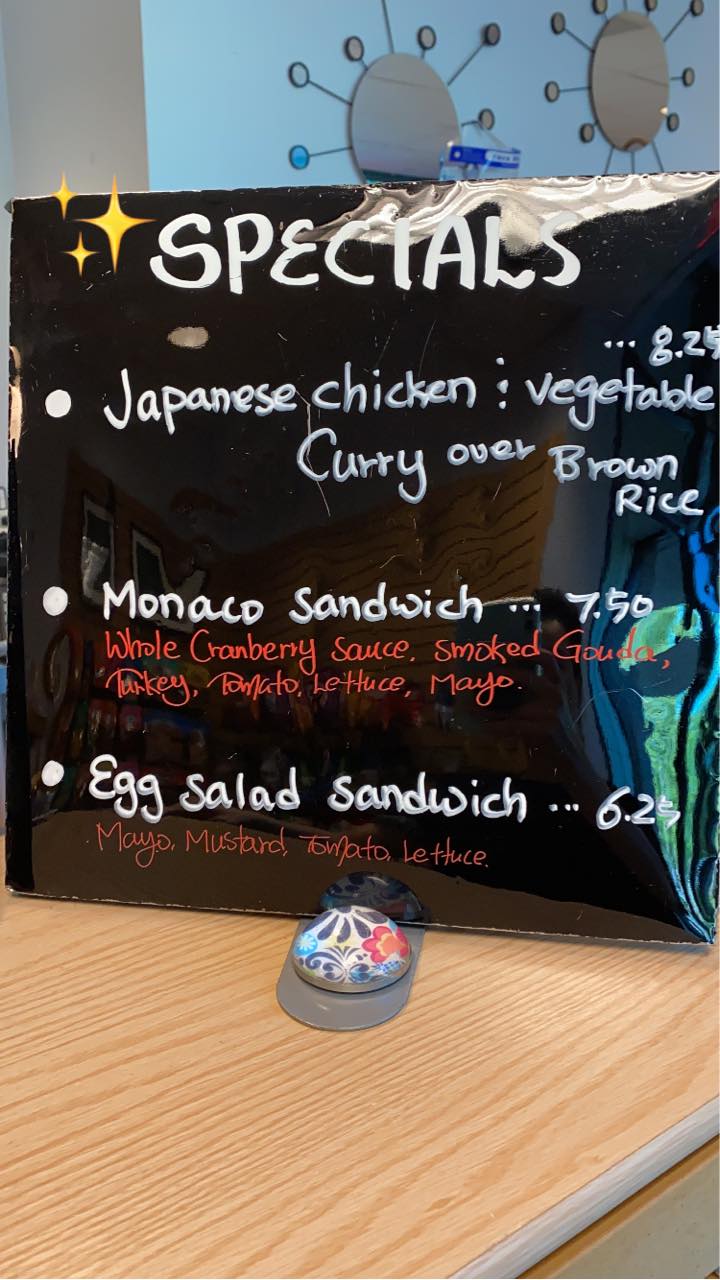 SPECIALS
... 8.25
• Japanese chicken : vegetable
Curry over Brown
Rice
• Monaco Sandwich ... 7.50
Whole Cranberry Sauce, Smoked Gouda,
Turkey, Tomato, Lettuce, Mayo.
• Egg Salad Sandwich ... 6.25
Mayo, Mustard, Tomato, Lettuce.